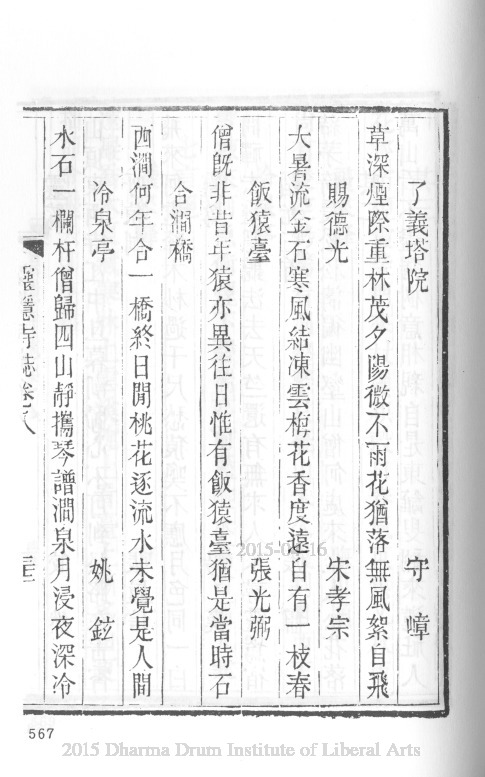 了義塔院 守嶂
草深煙際重林茂夕陽微不雨花猶落無風絮自飛
賜德光 宋孝宗
大暑流金石寒風結凍雲梅花香度遠自有一枝春
飯猿臺 張光弼
僧既非昔年猿亦異往日惟有飯猿臺猶是當時石
合澗橋
西澗何年合一橋終日閒桃花逐流水未覺是人間
冷泉亭 姚鉉
水石一欄杆僧歸四山靜攜琴譜澗泉月浸夜深冷
靈隱寺誌卷八
567
2015 Dharma Drum Institute of Liberal Arts